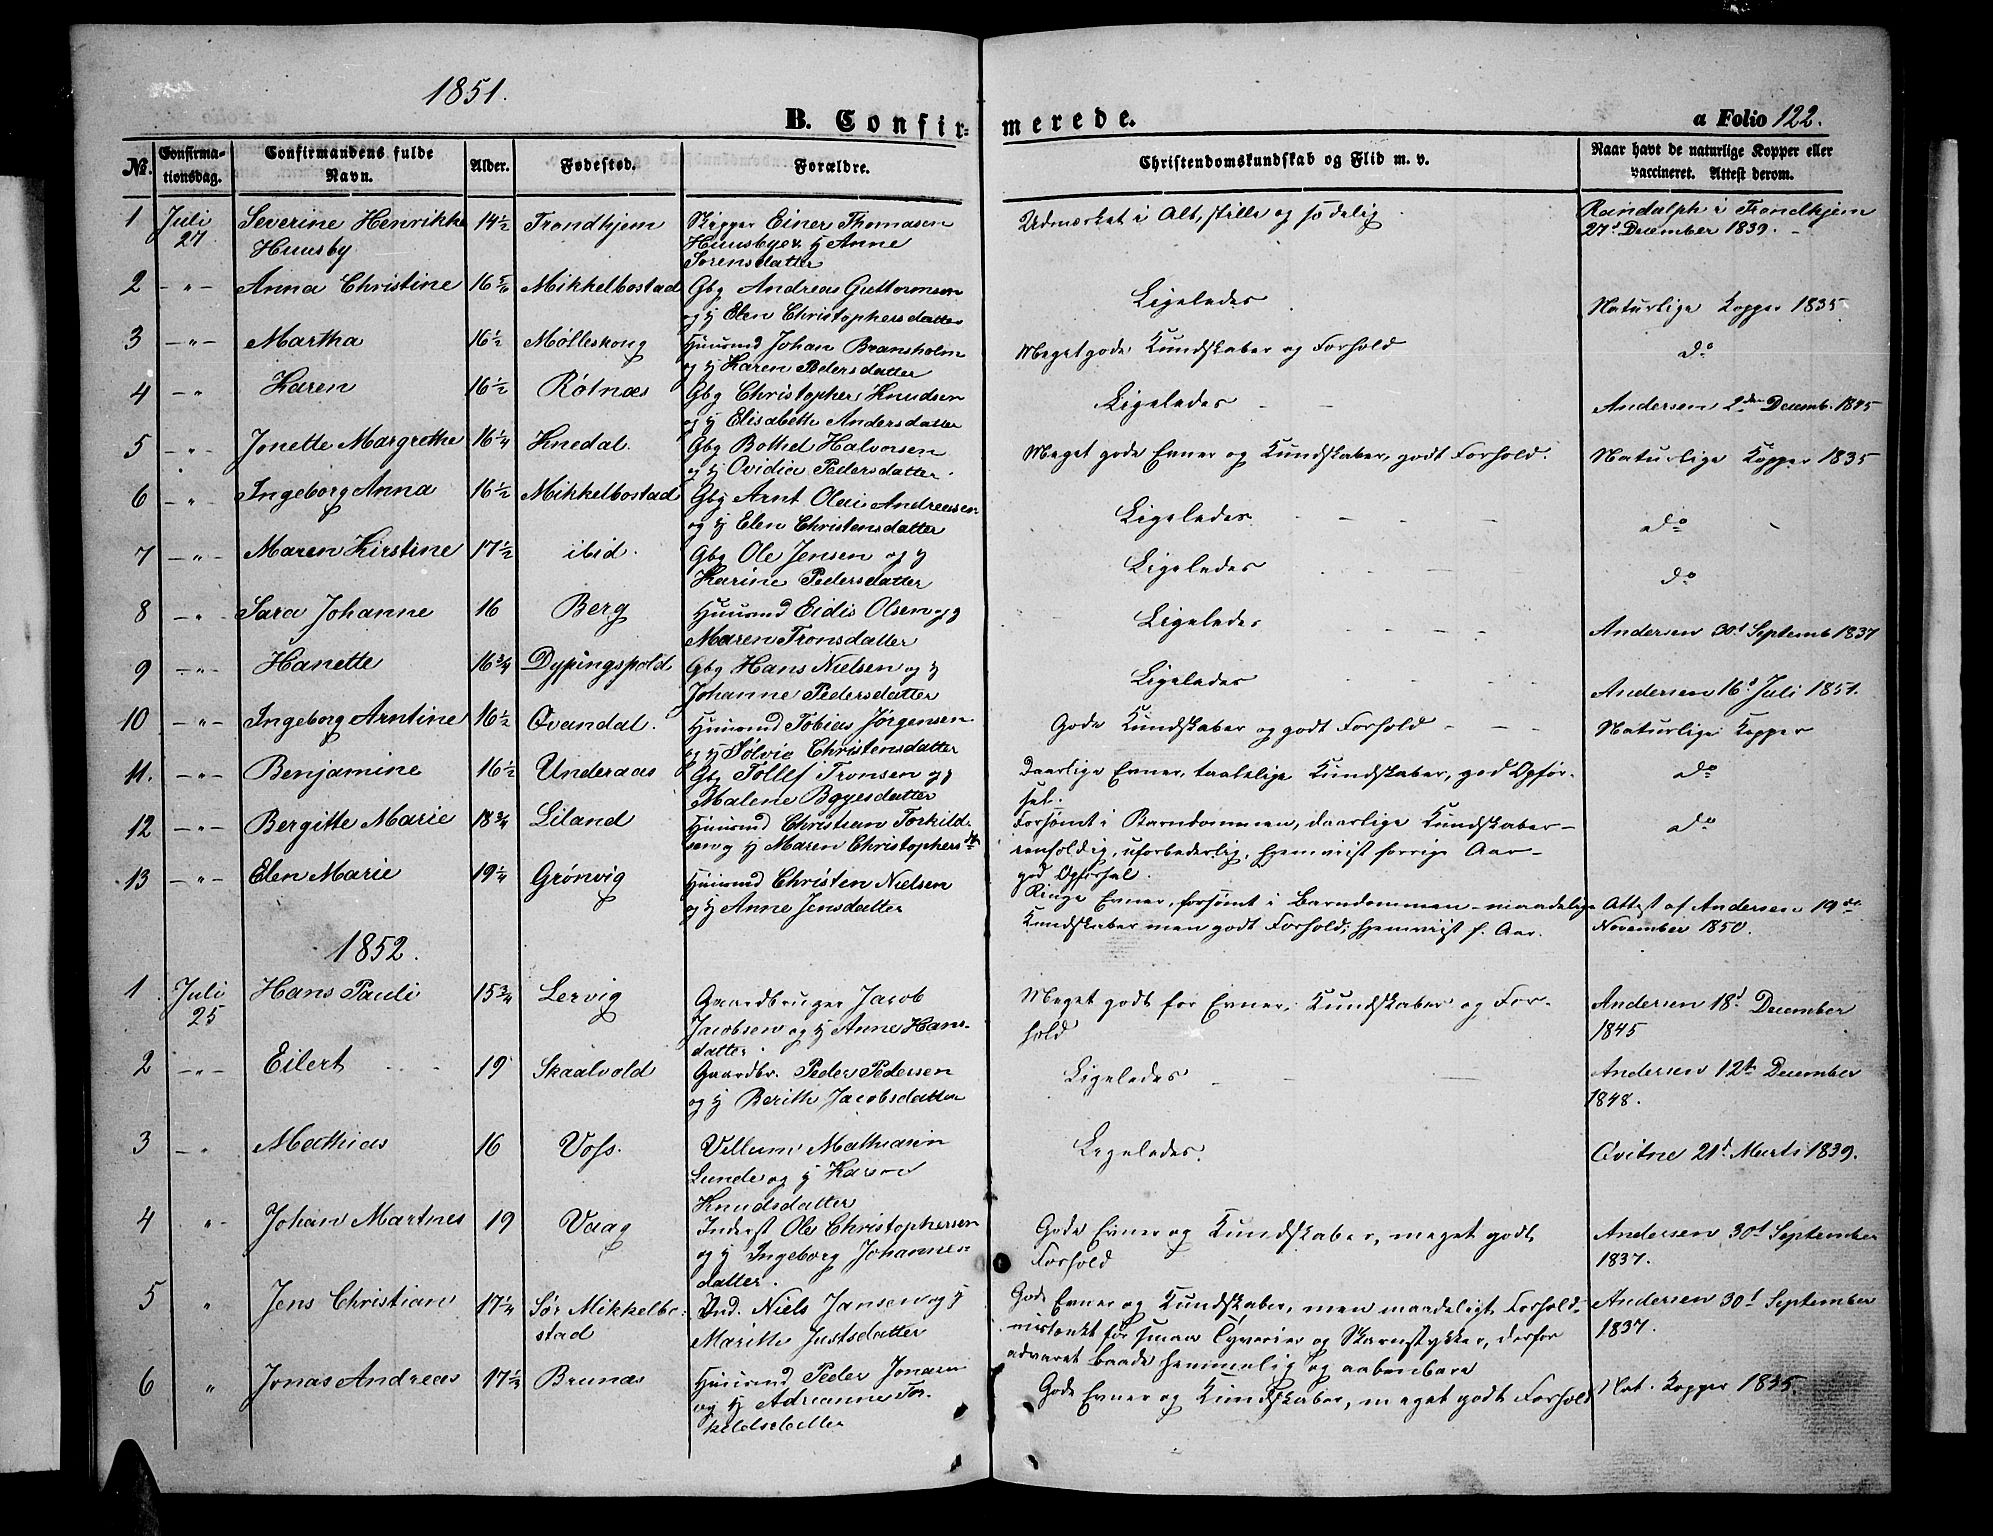 1851.
B. Confir-
merede.
a Folio 122.
№. Confirma-tionsdag. Confirmandens fulde Navn. Alder. Fødested. Forældre. Christendomskundskab og Flid m. v. Naar havt de naturlige Kopper eller vaccineret. Attest derom.
1 Juli 27 Severine Henrikke Huusby 14½ Trondhjem Skipper Einer Thomasen Huusbye & H Anne Sørensdatter Udmærket i Alt, stille og sædelig Randalph i Trondhjem 27d December 1839.
2 -"- Anna Christine 16 5/6 Mikkelbostad Gbg Andreas Guttormsen og H Elen Christophersdatter Ligeledes Naturlige Kopper 1835
3 -"- Martha 16½ Mølleskong Huusmd Johan Bransholm og H Karen Pedersdatter Meget gode Kundskaber og Forhold do
4 -"- Karen 16½ Røtnæs Gbg Christopher Knudsen og H Elisabeth Andersdatter Ligeledes Andersen 2den Decemb. 1845
5 -"- Jonette Margrethe 16¼ Knedal. Gbg Bottel Halvorsen og H Ovidia Pedersdatter. Meget gode Evner og Kundskaber, godt Forhold. Naturlige Kopper 1835
6 -"- Ingeborg Anna 16½ Mikkelbostad Gbg Arnt Olai Andreasen og H Elen Christensdatter Ligeledes do
7 -"- Maren Kirstine 17½ ibid. Gbg Ole Jensen og H Karine Pedersdatter Ligeledes do
8 -"- Sara Johanne 16 Berg Huusmd Eidis Olsen og H Maren Tronsdatter Ligeledes Andersen 30d Septemb 1837
9 -"- Hanette 16¾ Dypingspold Gbg Hans Nielsen og H Johanne Pedersdatter Ligeledes Andersen 16d Juli 1851.
10 -"- Ingeborg Arntine 16½ Qvandal. Huusmd Tobias Jørgensen og H Sølvie Christensdatter Gode Kundskaber og godt Forhold Naturlige Kopper
11. -"- Benjamine 16½ Underaas Gbg Tollef Tronsen og H Malene Boyesdatter Daarlige Evner, taalelige Kundskaber, god Opfør-sel. do
12 -"- Bergitte Marie 18¾ Liland Huusmd Christian Torkild-sen og H Maren Christophersdtr Forsømt i Barndommen, daarlige Kundskaber - eenfoldig, uforbederlig, hjemviist forrige Aar - god Opførsel. do
13 -"- Elen Marie 19¼ Grønvig Huusmd Christen Nielsen og H Anne Jensdatter Ringe Evner, forsømt i Barndommen - maadelige Kundskaber men godt Forhold; hjemviist f. Aar. Attest af Andersen 19de November 1850.
1852.
1. Juli 25 Hans Pauli 15¾ Lervig Gaardbruger Jacob Jacobsen og H Anne Hans-datter. Meget godt for Evner, Kundskaber og For-hold Andersen 18d December 1845
2 -"- Eilert 19 Skaalvold Gaardbr. Peder Pedersen og H Berith Jacobsdatter Ligeledes Andersen 12te December 1848.
3 -"- Mathias 16 Voss. Villum Mathiasen Lunde og H Karen Knudsdatter Ligeledes. Qvitne 21d Marts 1839.
4 " Johan Martnes 19 Vaag Inderst Ole Christophersen og H Ingeborg Johannes datter. Gode Evner og Kundskaber, meget godt Forhold Andersen 30d September 1837.
5 " Jens Christian 17¼ Sør Mikkelbo-stad Ind. Niels Jansen og H Marith Justsdatter Gode Evner og Kundskaber, men maadeligt Forhold; mistænkt for smaa Tyverier og Skarnstykker, derfor advaret baade hemmelig og aabenbare Andersen 30d September 1837.
6 " Jonas Andreas 17½ Brunæs Huusmd Peder Jonasen og H Adrianna Tor-keldsdatter Gode Evner og Kundskaber, meget godt Forhold Nat. Kopper 1835.